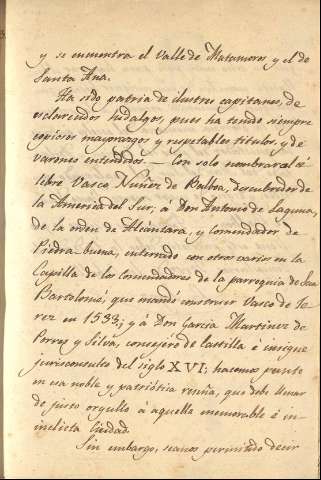 y se encuentra el Valle de Matamoros y el de
Santa Ana.
Ha sido patria de ilustres capitanes, de
esclarecidos hidalgos, pues ha tenido siempre
copiosos mayorazgos y respetables titulos, y de
varones entendidos. — Con solo nombrar al cé
lebre Vasco Nuñez de Balboa, descubridor de
la America del Sur; á Don Antonio de Laguna,
de la orden de Alcántara, y comendador de
Piedra-buena, enterrado con otros varios en la
Capilla de los Comendadores de la parroquia de San
Bartolomé, que mandó construir Vasco de Je-
rez en 1533; y á Don Garcia Martinez de
Porres y Silva, consejero de Castilla é insigne
jurisconsulto del siglo XVI; hacemos punto
en esa noble y patriótica reseña, que debe llenar
de justo orgullo á aquella memorable é in-
inclieta Ciudad.
Sin embargo, seanos permitido decir